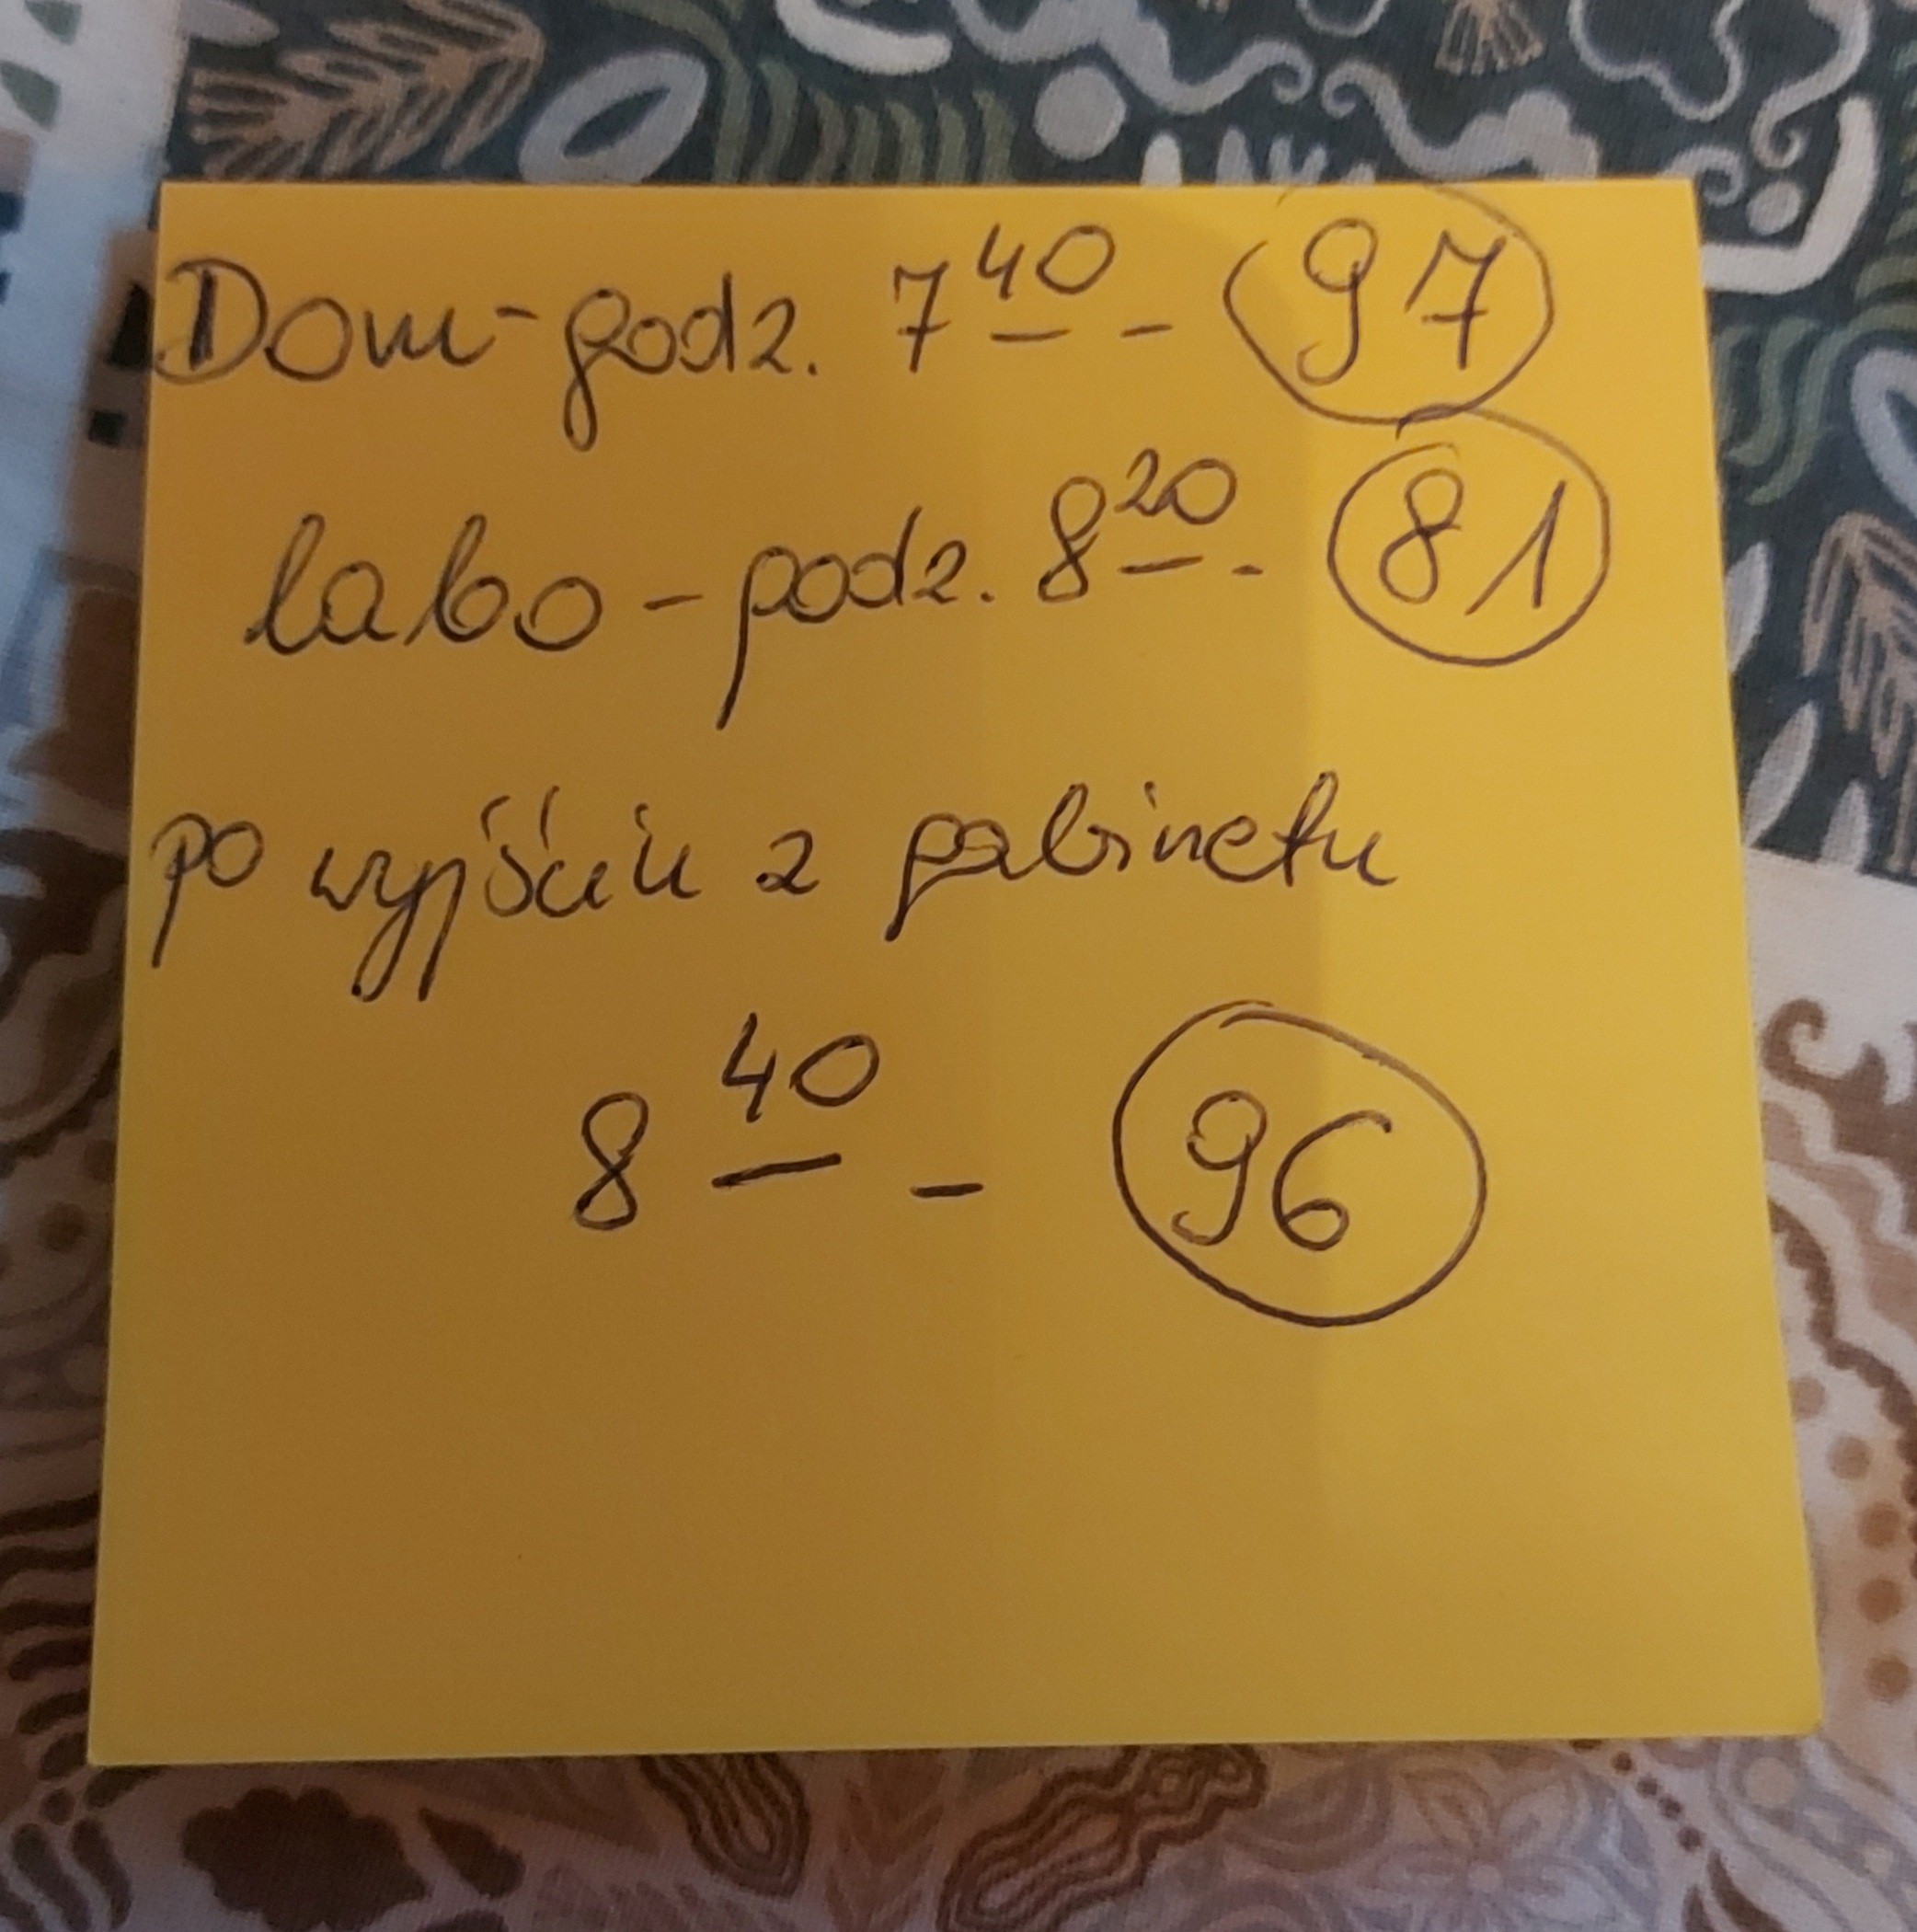 Dom - godz. 7 40 - 97
labo - godz. 8 20 - 81
po wyjściu z gabinetu
8 40 - 96